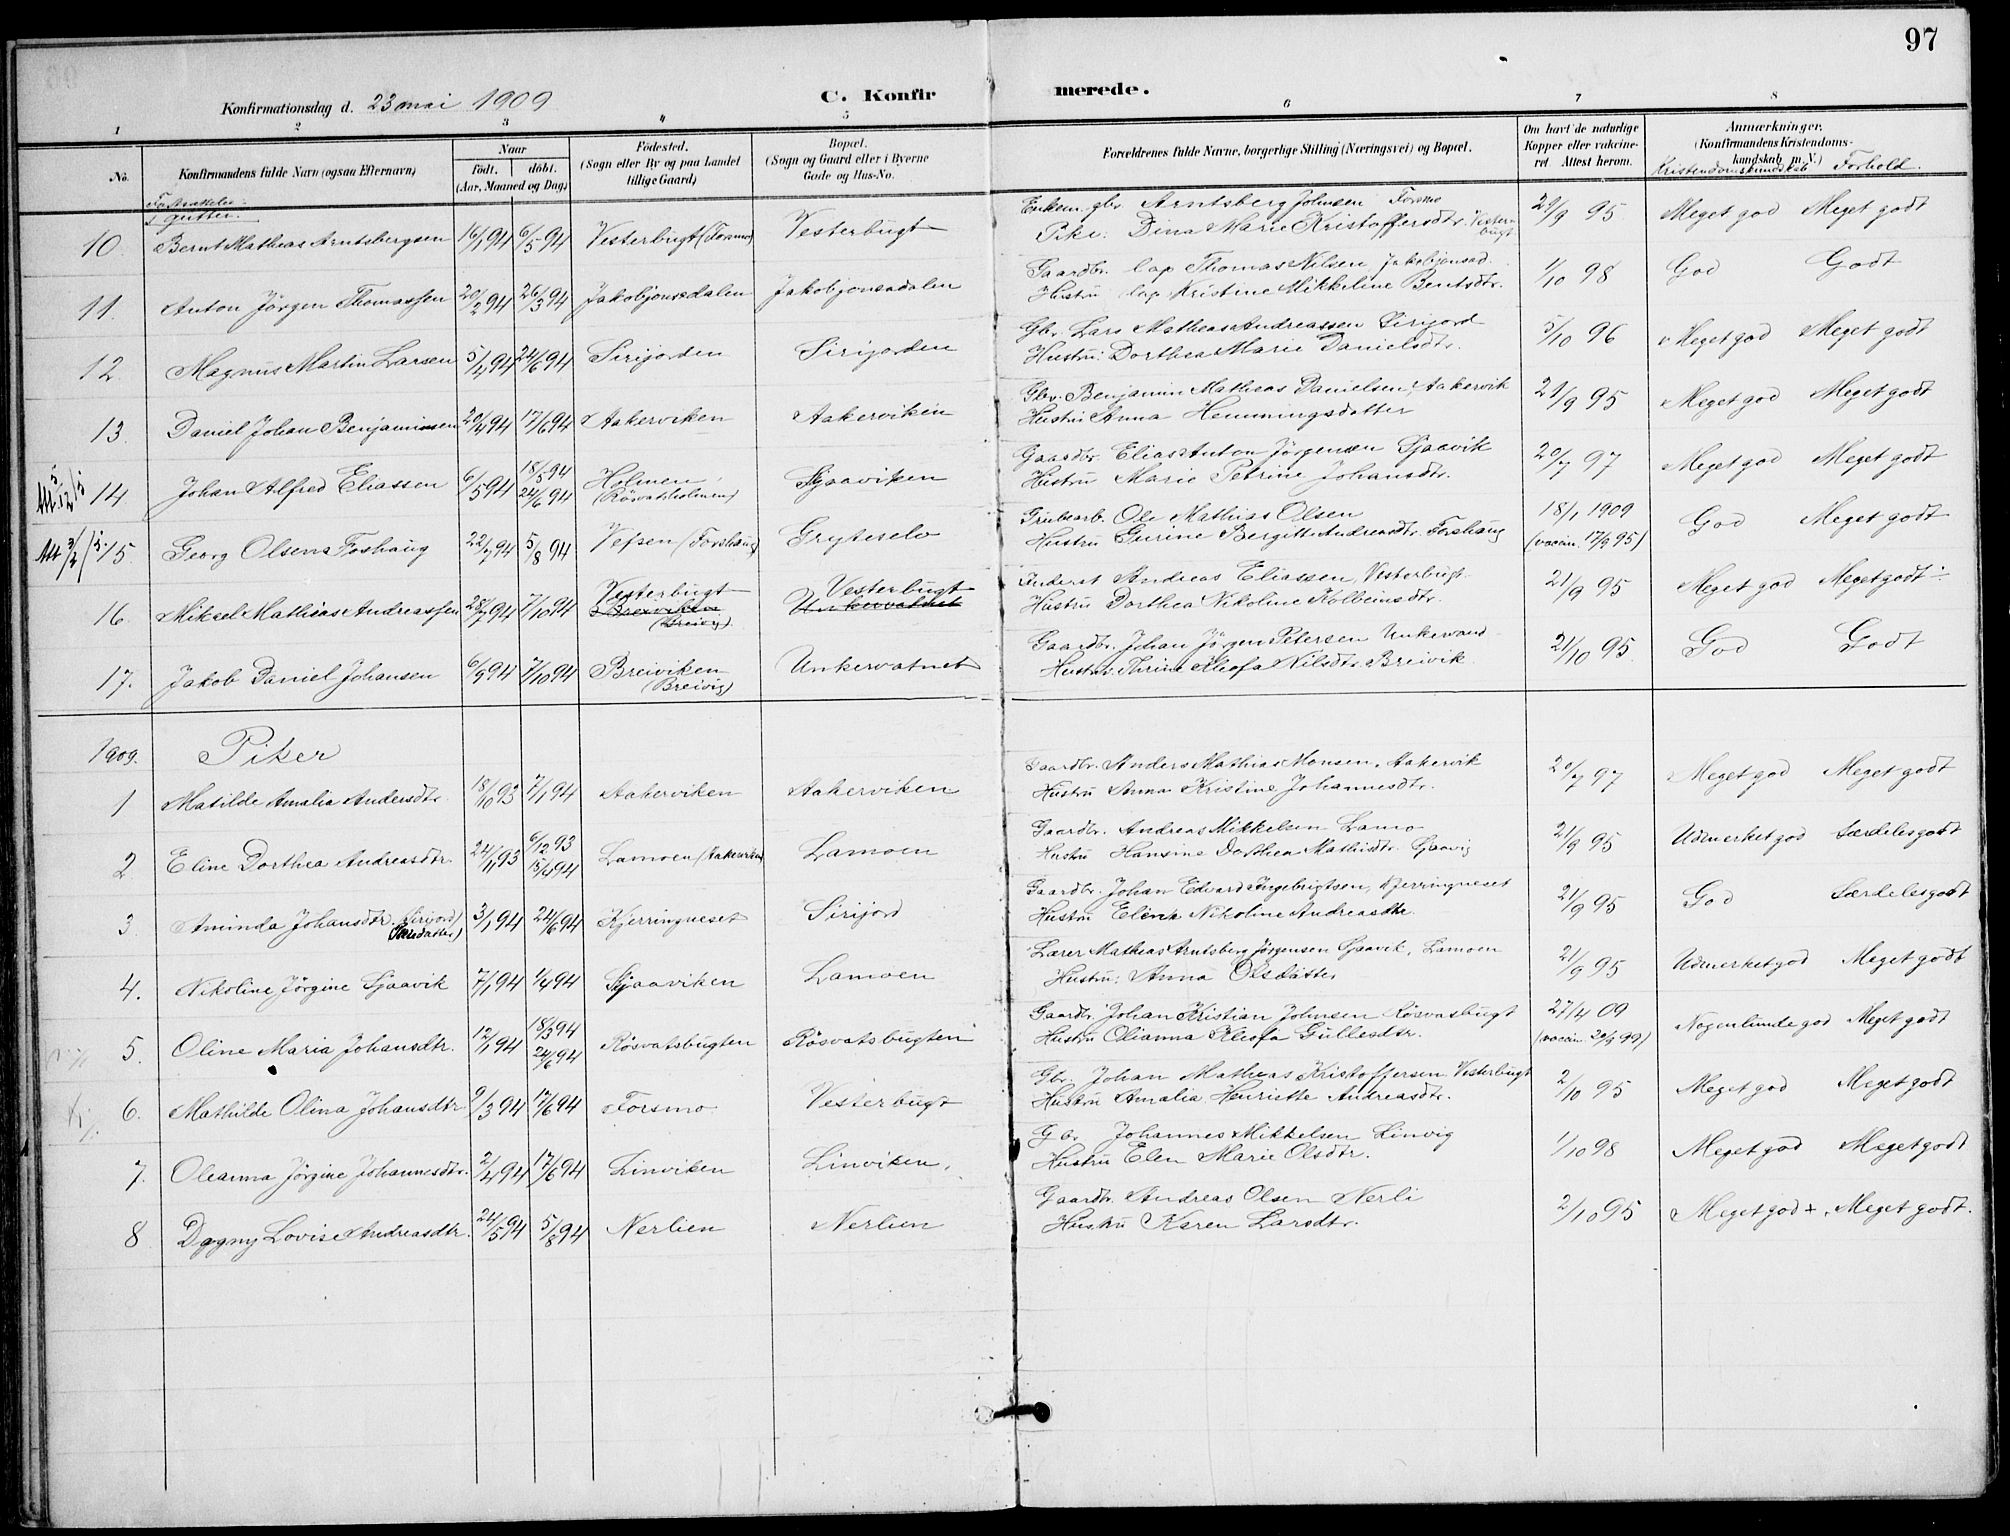 97
Konfirmationsdag d. 23 mai 1909
C. Konfirmerede.
1 2 3 4 5 6 7 8
No.
Konfirmandens fulde Navn (ogsaa Efternavn)
Naar født. døbt. (Aar, Maaned og Dag)
Fødested. (Sogn eller By og paa Landet tillige Gaard)
Bopæl. (Sogn og Gaard eller i Byerne Gade og Hus-No.
Forældrenes fulde Navne, borgerlige Stilling (Næringsvei) og Bopæl.
Om havt de naturlige Kopper eller vaccineret. Attest herom.
Anmærkninger. (Konfirmandens Kristendomskundskab m. V.)
Kristendomskundskab Forhold.
Fortsættelse: gutter.
10. Bernt Mathias Arntsbergsen 16/1 94 6/5 94 Vesterbugt (Forsmo) Vesterbugt Enkem. gbr. Arntsberg Johnsen Forsmo 21/9 95 Meget god Meget godt
Pike: Dina Marie Kristoffersdtr. Vesterbugt
11. Anton Jörgen Thomassen 20/2 94 26/3 94 Jakobjonsdalen Jakobjonsdalen Gaardbr. lap Thomas Nilsen Jakobjonsd. 1/10 98 God Godt
Hustru lap Kristine Mikkeline Bentsdtr.
12. Magnus Martin Larsen 5/4 94 24/6 94 Sirijorden Sirijorden Gbr. Lars Mathias Andreassen Sirijord 5/10 96 Meget god Meget godt
Hustru: Dorthea Marie Danielsdtr.
13. Daniel Johan Benjaminsen 20/4 94 17/6 94 Aakerviken Aakerviken Gbr. Benjamin Mathias Danielsen, Aakervik 21/9 95 Meget god Meget godt
Hustru Anna Hemmingsdatter
14 Johan Alfred Eliassen 6/5 94 18/5 94 24/6 94 Holmen (Rösvatsholmen) Sjaaviken Gaardbr. Elias Anton Jörgensen Sjaavik 20/7 97 Meget god Meget godt
Hustru Marie Petrine Johansdtr.
15. Georg Olsen Foshaug 22/7 94 5/8 94 Vefsen (Forshaug) Gryteselv Grubearb. Ole Mathias Olsen 18/1 1909 God Meget godt
Hustru Gurine Bergitte Andreasdtr. Forshaug (vaccin. 17/9 95)
16. Mikael Mathias Andreassen 28/7 94 7/10 94 Vesterbugt Breiviken (Breivig) Vesterbugt Unkervatnet Inderst Andreas Eliassen, Vesterbugt 21/9 95 Meget god Meget godt
Hustru Dorthea Nikoline Kolbeinsdtr.
17. Jakob Daniel Johansen 6/9 94 7/10 94 Breiviken (Breivig) Unkervatnet Gaardbr. Johan Jörgen Petersen Unkervand 21/10 95 God Godt
Hustru: Kleofa Nilsdtr. Breivik
1909. Piker
1 Matilde Amalia Andersdtr. 18/10 93 7/1 94 Aakerviken Aakerviken Gaardbr. Anders Mathias Monsen, Aakervik 20/7 97 Meget god Meget godt
Hustru Anna Kristine Johannesdtr.
2 Eline Dorthea Andreasdtr. 24/1 93 6/12 93 15/4 94 Lamoen (Aakerviken) Lamoen Gaardbr. Andreas Mikkelsen Lamo 21/9 95 Udmerket god Særdeles godt
Hustru Hansine Dorthea Mathisdtr. Sjaavig
3. Aminda Johansdtr. Sirijord (Pleiedatter) 3/1 94 24/6 94 Kjerringneset Sirijord Gaardbr. Johan Edvard Ingebrigtsen, Kjerringneset 21/9 95 God Særdeles godt
Hustru Elen Nikoline Andreasdtr.
4. Nikoline Jörgine Sjaavik 7/1 94 1/4 94 Sjaaviken Lamoen Lærer Mathias Arntsberg Jörgensen Sjaavik, Lamoen 21/9 95 Udmerket god Meget godt
Hustru: Anna Olsdatter
5. Oline Maria Johansdtr. 12/1 94 18/3 94 24/6 94 Rösvatsbugten Rösvatsbugten Gaardbr. Johan Kristian Johnsen Rösvasbugt 27/4 09 Nogenlunde god Meget godt
Hustru Olianna Kleofa Gullesdtr. (vaccin. 20/9 99)
6. Mathilde Olina Johansdtr. 9/3 94 17/6 94 Forsmo Vesterbugt Gbr. Johan Mathias Kristoffersen Vesterbugt 2/10 95 Meget god Meget godt
Hustru Amalia Henriette Andreasdtr.
7. Oleanna Jörgine Johannesdtr. 2/4 94 17/6 94 Linviken Linviken. Gbr. Johannes Mikkelsen Linvig 1/10 98 Meget god Meget godt
Hustru Elen Marie Olsdtr.
8 Dagny Lovise Andreasdtr. 24/5 94 5/8 94 Nerlien Nerlien Gaardbr. Andreas Olsen Nerli 2/10 95 Meget god +. Meget godt.
Hustru Karen Larsdtr.